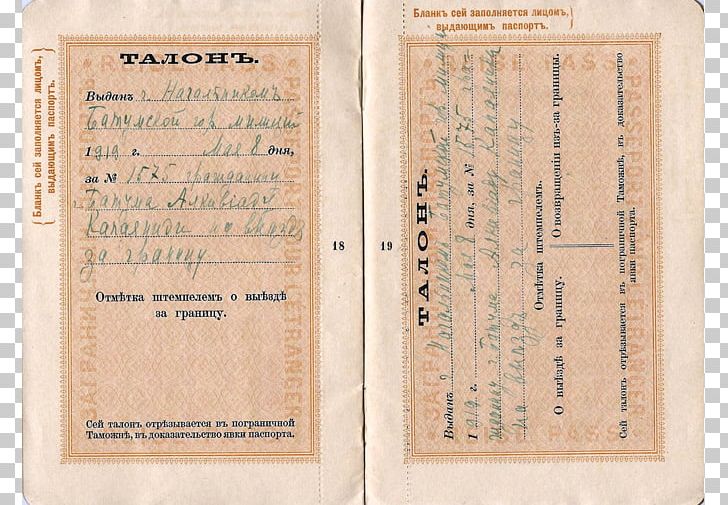 Бланкъ сей заполняется лицомъ,
выдающимъ паспортъ.
ТАЛОНЪ.
Выданъ г. Начальникомъ
Батумской гор. милиціи
1919 г. Мая 8 дня,
за № 1575 гражданину
Батума
по выезду
за границу
Отмѣтка штемпелемъ о выѣздѣ
за границу.
Сей талонъ отрѣзывается въ пограничной
Таможнѣ, въ доказательство явки паспорта.
18
19
Бланкъ сей заполняется лицомъ,
выдающимъ паспортъ.
ТАЛОНЪ.
Выданъ г. Начальникомъ Батумской гор. милиціи
1919 г. Мая 8 дня, за № 1575
г. Батума
за границу
Отмѣтка штемпелемъ.
О выѣздѣ за границу. О возвращеніи изъ-за границы.
Сей талонъ отрѣзывается въ пограничной Таможнѣ, въ доказательство
явки паспорта.